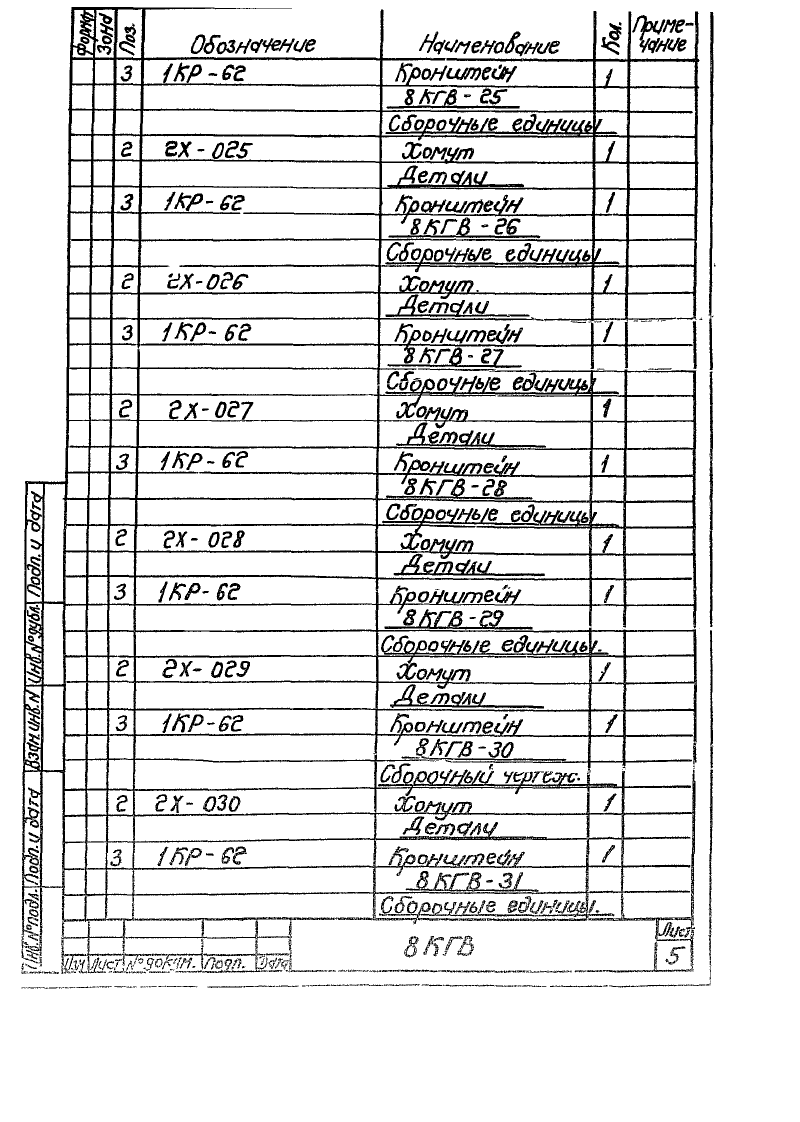 Формат Зона Поз. Обозначение Наименование Кол. Приме-
чание
3 1КР-62 Кронштейн 1
8КГВ-25
Сборочные единицы
2 2Х-025 Хомут 1
Детали
3 1КР-62 Кронштейн 1
8КГВ-26
Сборочные единицы
2 2Х-026 Хомут. 1
Детали
3 1КР-62 Кронштейн 1
8КГВ-27
Сборочные единицы
2 2Х-027 Хомут 1
Детали
3 1КР-62 Кронштейн 1
8КГВ-28
Сборочные единицы
2 2Х-028 Хомут 1
Детали
3 1КР-62 Кронштейн 1
8КГВ-29
Сборочные единицы.
2 2Х-029 Хомут 1
Детали
3 1КР-62 Кронштейн 1
8КГВ-30
Сборочный чертеж.
2 2Х-030 Хомут 1
Детали
3 1КР-62 Кронштейн 1
8КГВ-31
Сборочные единицы.
Инв.№подл. Подп.и дата Взам инв.N Инв.№дубл. Подп.и дата
Изм Лист №докум. Подп. Дата
8КГВ
Лист
5